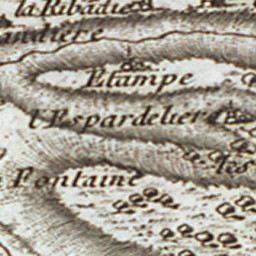 la Ribadie
audiere
Etampe
l'Espardeliere
les
Fontaine